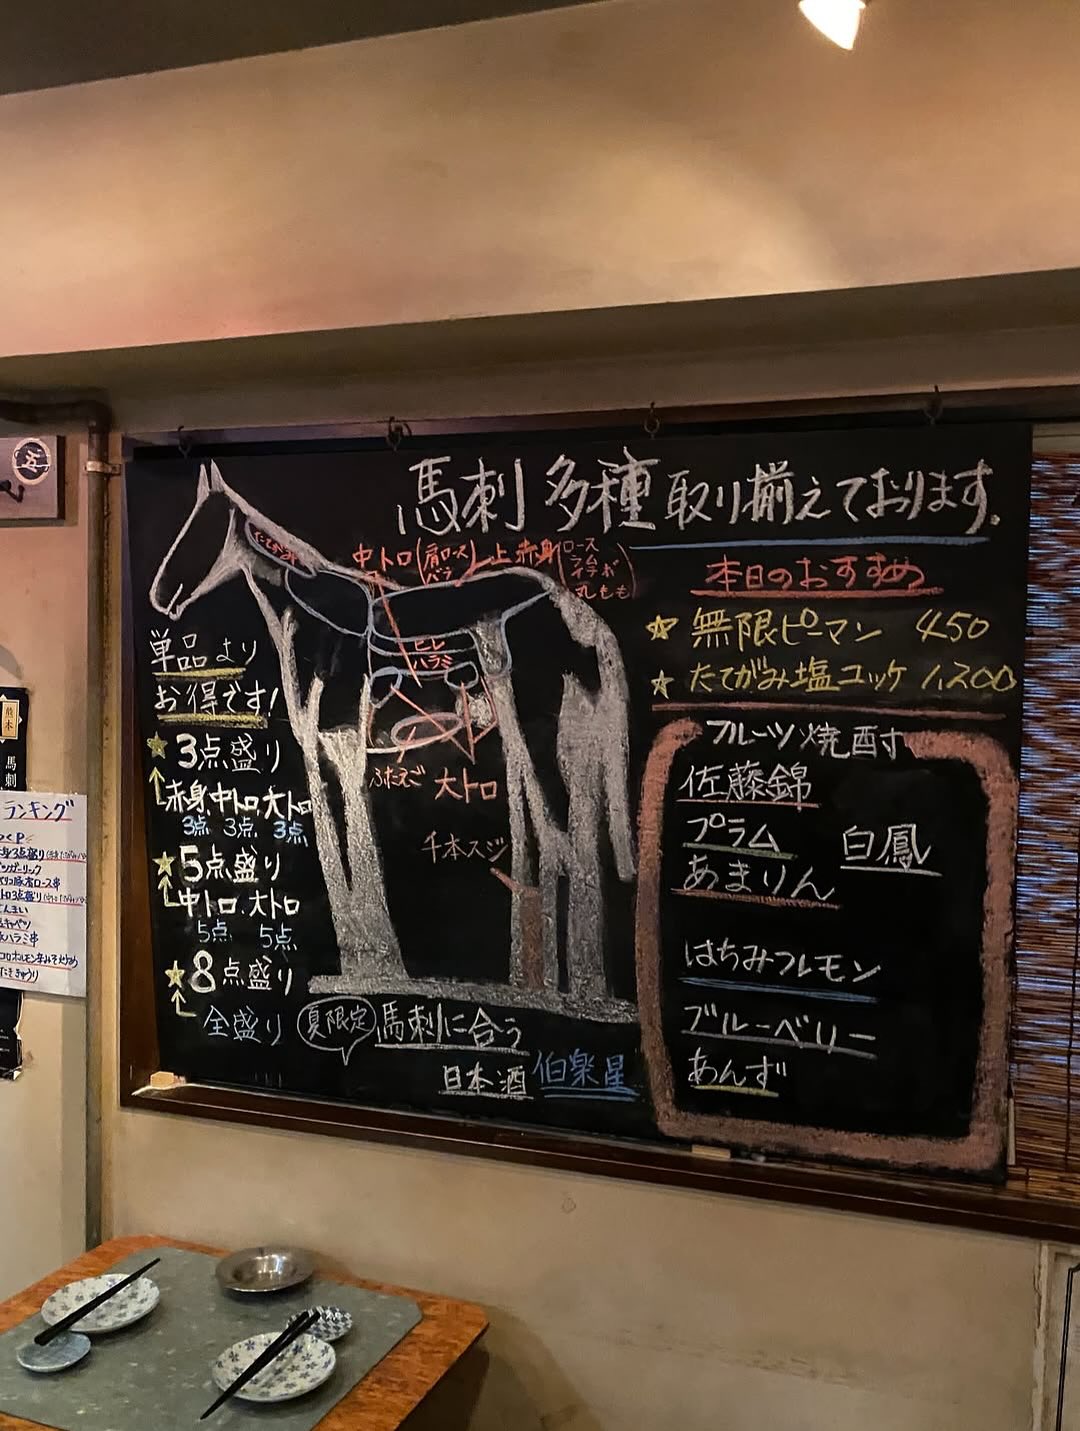 馬刺 多種 取り揃えております。
たてがみ
中トロ(肩ロース
バラ)
上赤身(ロース
ラム
イチボ
丸もも)
ヒレ
ハラミ
ふたえご
大トロ
千本スジ
単品より
お得です!
3点盛り
赤身、中トロ、大トロ
3点 3点 3点
5点盛り
中トロ、大トロ
5点 5点
8点盛り
全盛り
夏限定 馬刺に合う
日本酒 伯楽星
本日のおすすめ
無限ピーマン 450
たてがみ塩ユッケ 1,200
フルーツ焼酎
佐藤錦
プラム
白鳳
あまりん
はちみつレモン
ブルーベリー
あんず
熊本
馬刺
ランキング